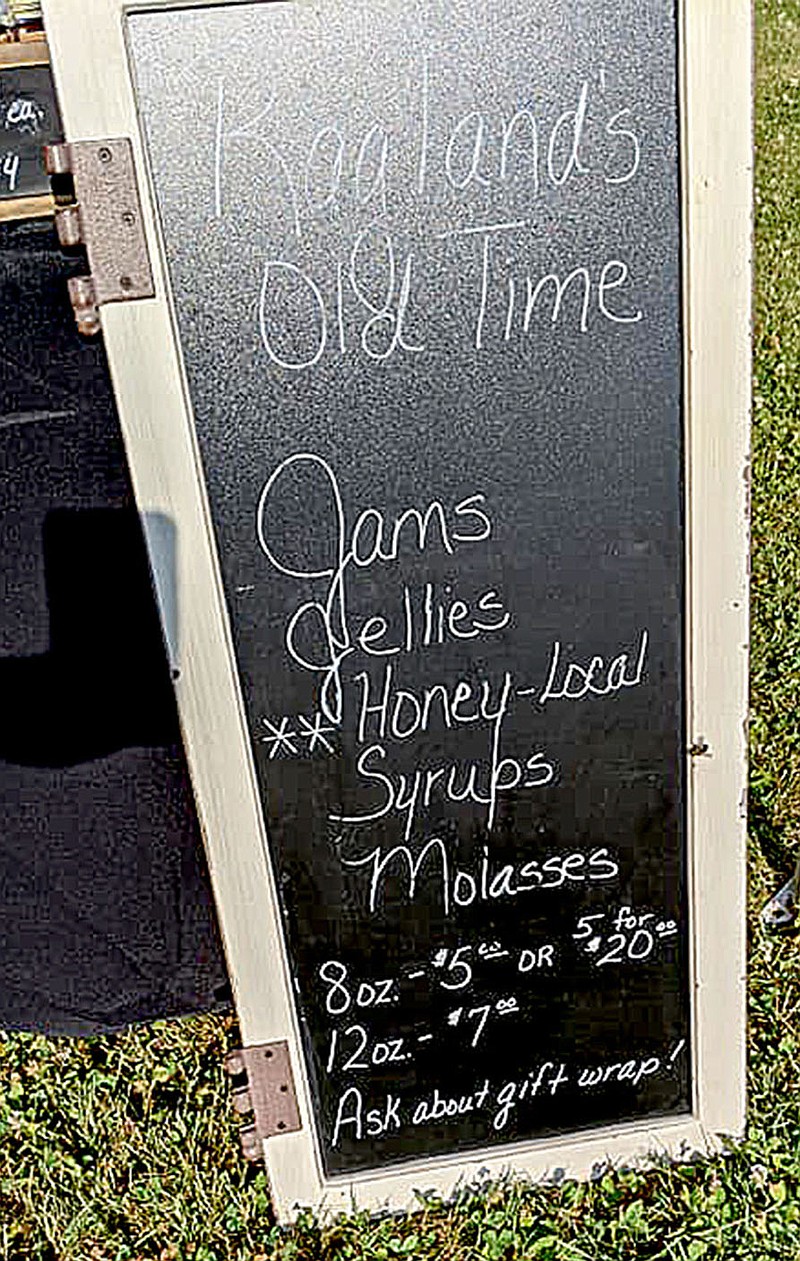 ea.
4
Ragland's
Old Time
Jams
Jellies
** Honey-Local
Syrups
Molasses
8oz. - $5.00 OR 5 for $20.00
12oz. - $7.00
Ask about gift wrap!